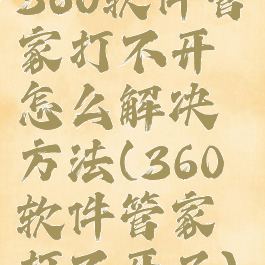 360软件管
家打不开
怎么解决
方法(360
软件管家
打不开了)